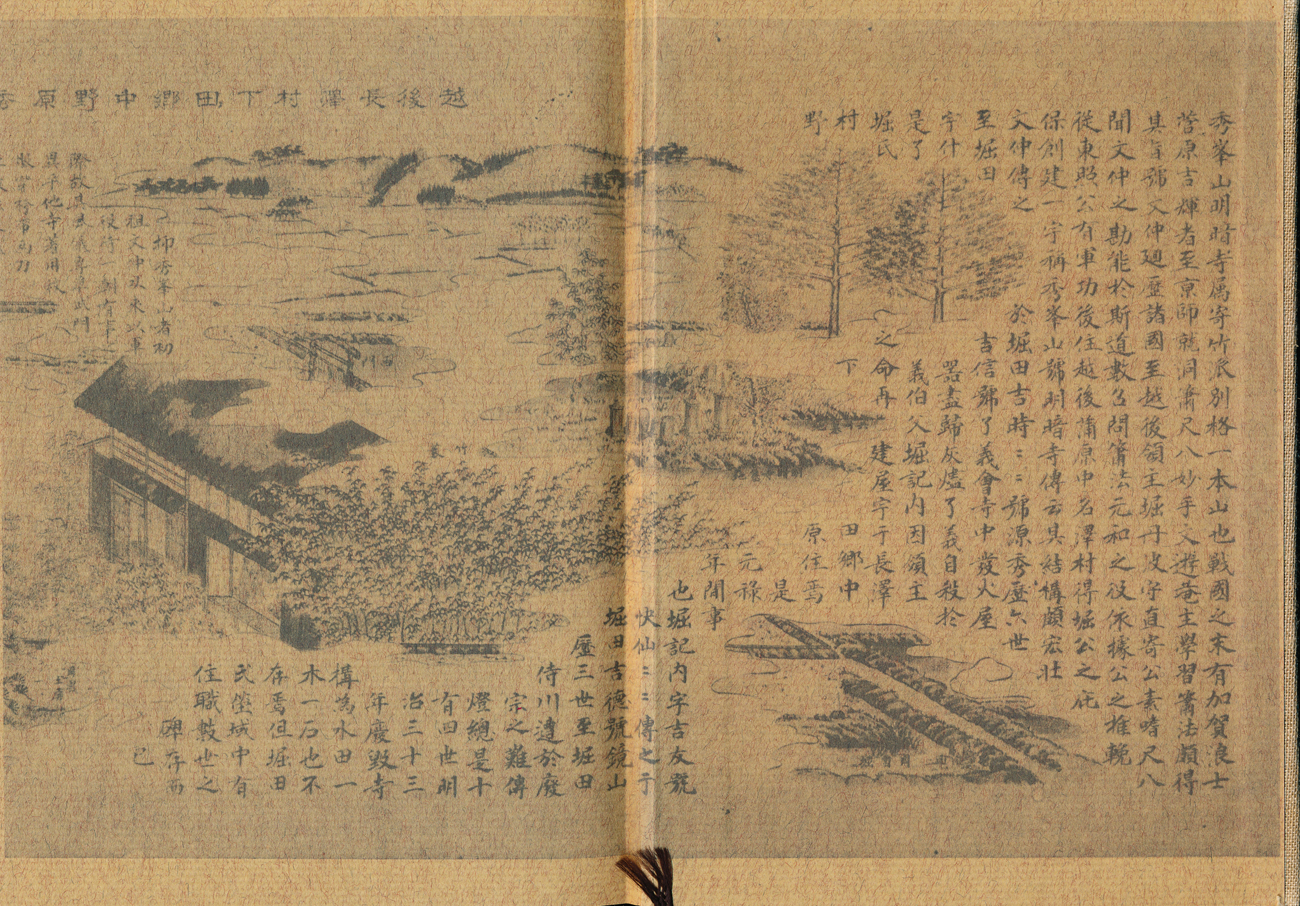 越後長澤村下田郷中野原秀
秀峯山明暗寺属寄竹派別格一本山也戦國之末有加賀浪士
菅原吉輝者至京師就洞簫尺八妙手文遊菴主學習簫法頗得
其旨號文仲廻歴諸國至越後領主堀丹波守直寄公素嗜尺八
聞文仲之勘能於斯道數召問簫法元和之役依據公之推輓
従東照公有軍功後住越後蒲原中名澤村得堀公之庇
保創建一宇称秀峯山號明暗寺傳云其結構頗宏壮
文仲傳之於堀田吉時〻〻號源秀歴六世
至堀田吉信號了義會寺中發火屋
宇什器盡歸灰燼了義自殺於
是了義伯父堀記内因領主
堀氏之命再建屋宇于長澤
村下田郷中
野原住焉
是
元禄
年間事
也堀記内字吉友號
快仙〻〻傳之于
堀田吉德號鏡山
歴三世至堀田
侍川遭於廢
宗之難傳
燈總是十
有四世明
治三十三
年廢毀寺
構為水田一
木一石也不
存焉但堀田
氏塋域中有
住職數世之
碑存而
已
抑秀峯山者初
祖文仲以来以軍
役待一例有事
際
異于他寺著用
竹